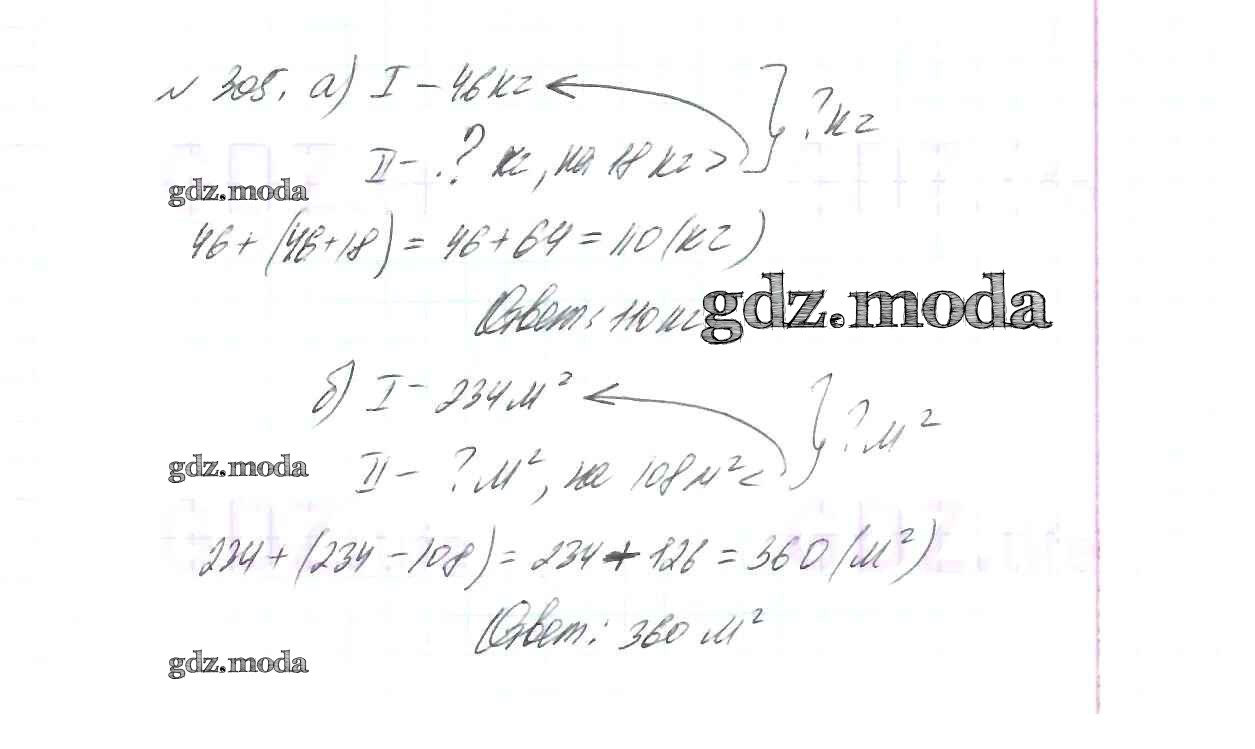 № 305. а) I – 46 кг } ? кг
II – ? кг, на 18 кг >
gdz.moda
46 + (46+18) = 46 + 64 = 110 (кг)
Ответ: 110 кг
gdz.moda
б) I – 234 м² } ? м²
II – ? м², на 108 м² <
gdz.moda
234 + (234 – 108) = 234 + 126 = 360 (м²)
Ответ: 360 м²
gdz.moda